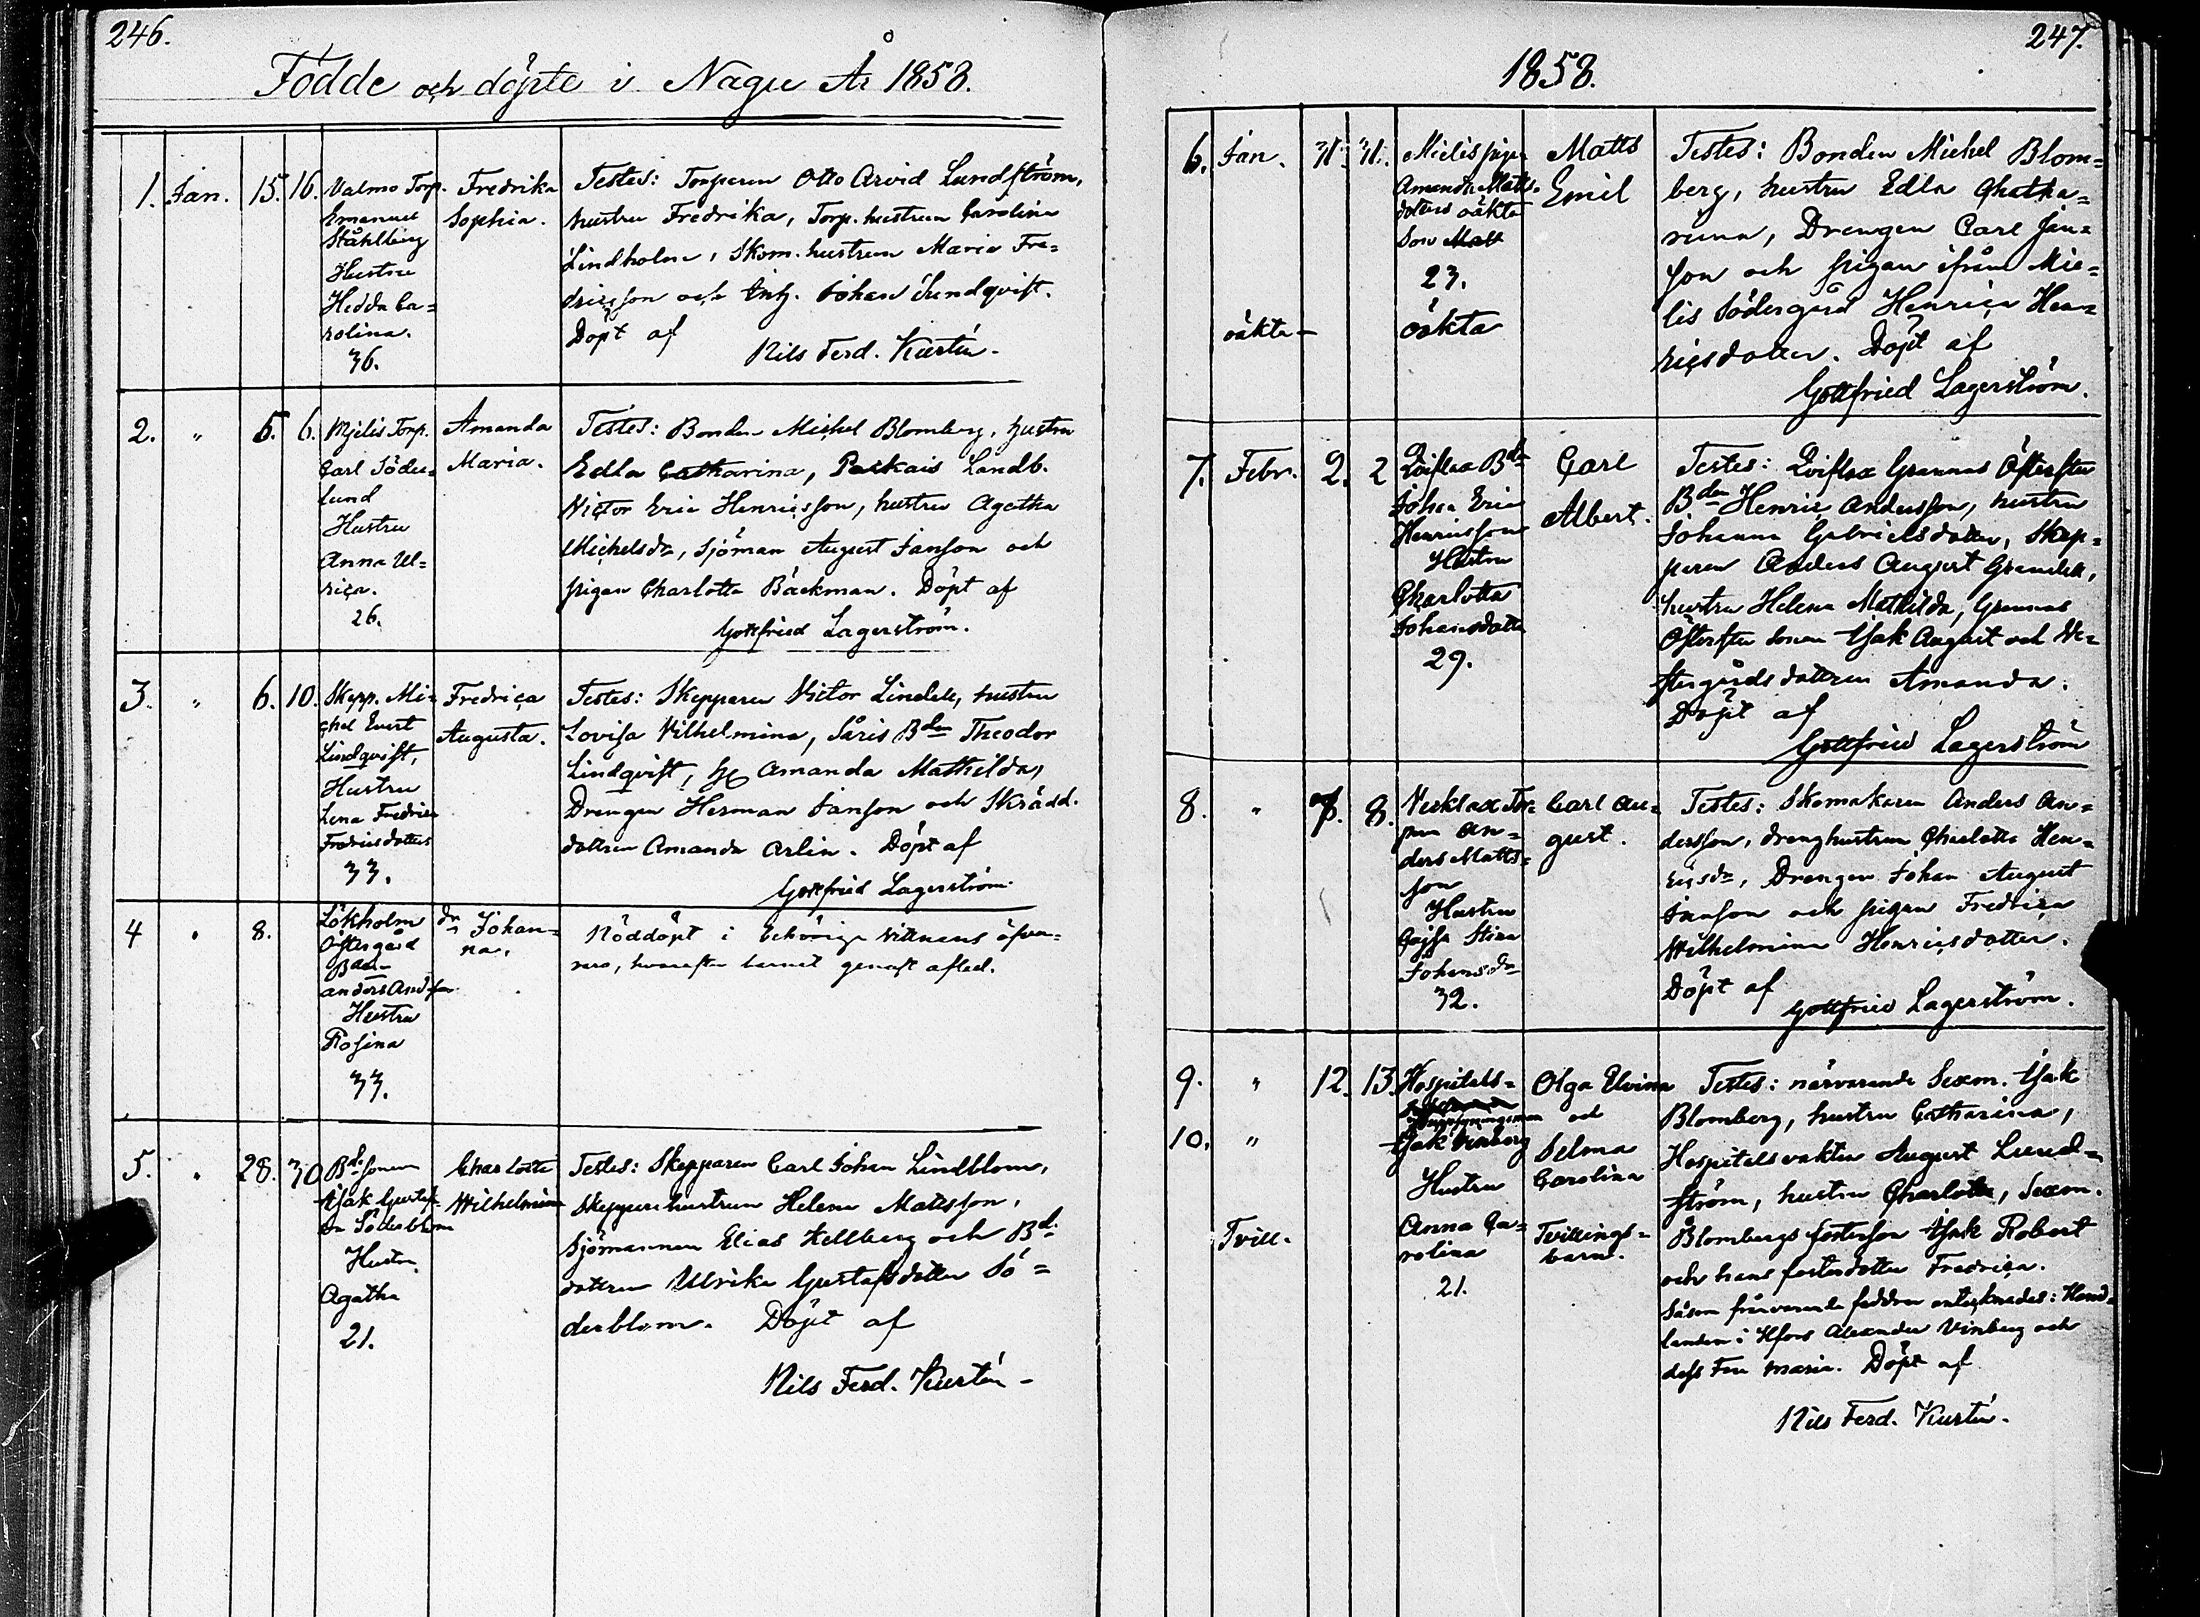 246.
Födde och döpte i Nagu År 1858.
1. Jan. 15. 16.
Valmo Torp.
Emanuel
Ståhlberg
Hustru
Hedda Ca=
rolina.
36.
Fredrika
Sophia.
Testes: Torparen Otto Arvid Lundström,
hustru Fredrika, Torp. hustrun Carolina
Lindholm, Skom. hustrun Maria Fre=
dricsson och Johan Sundqvist.
Döpt af
Nils Ferd. Kurtén.
2. " 5. 6.
Mjelis Torp.
Carl Söder=
lund
Hustru
Anna Ul=
rica.
26.
Amanda
Maria.
Testes: Bonden Michel Blomberg, hustru
Edla Catharina, Parkais Landb.
Victor Eric Henricsson, hustru Agatha
Michelsdr, Sjöman August Janson och
pigan Charlotta Bäckman. Döpt af
Gottfried Lagerström.
3. " 6. 10.
Skepp. Mi=
chel Evert
Lindqvist,
Hustru
Lena Fredrica
Fredricsdotter
33.
Fredrica
Augusta.
Testes: Skepparen Victor Lindell, hustru
Lovisa Wilhelmina, Såris Bden Theodor
Lindqvist, h. Amanda Mathilda,
Drengen Herman Janson och Skrädd.
dottren Amanda Arlin. Döpt af
Gottfried Lagerström.
4 " 8.
Lökholm
Östergård
Bden
Anders Andsson
Hustru
Rosina
33.
dr Johan=
na.
Nöddöpt i behöriga vittnens öfver=
varo, hvarefter barnet genast afled.
5. " 28. 30
Bdesonen
Isak Gustaf
Söderblom
Hustru
Agatha
21.
Charlotta
Wilhelmina
Testes: Skepparen Carl Johan Lindblom,
Skepparehustrun Helena Mattsson,
Sjömannen Elias Hellberg och Bde
dottren Ulrika Gustafsdotter Sö=
derblom. Döpt af
Nils Ferd. Kurtén.
247.
1858.
6. Jan. 31. 31.
oäkta
Mielis pigan
Amanda Matts=
dotters oäkta
Son Matt
23.
oäkta
Matts
Emil
Testes: Bonden Michel Blom=
berg, hustru Edla Chatha=
rina, Drengen Carl Jan=
son och pigan ifrån Mie=
lis Södergård Henrica Hen=
ricsdotter. Döpt af
Gottfried Lagerström.
7. Febr. 2. 2
Qviflax Bden
Johan Eric
Henricsson
Hustru
Charlotta
Johansdotter
29.
Carl
Albert.
Testes: Qviflax Grannas Östersten
Bden Henric Andersson, hustru
Johanna Gabrielsdotter, Skep=
paren Anders August Grandell,
hustru Helena Mathilda, Grannas
Östersten sonen Isak August och Ve=
stergårds dottren Amanda.
Döpt af
Gottfried Lagerström
8. " 7. 8.
Verklax Tor=
paren An=
ders Matts=
son
Hustru
Cajsa Stina
Johansdr
32.
Carl Au=
gust.
Testes: Skomakaren Anders An=
dersson, drenghustrun Charlotta Hen=
ricsdr, Drengen Johan August
Janson och pigan Fredrica
Wilhelmina Henricsdotter.
Döpt af
Gottfried Lagerström.
9. " 12. 13.
10. "
Tvill.
Hospitals=
Isak Vinberg
Hustru
Anna Ca=
rolina
21.
Olga Elvina
och
Selma
Carolina
Tvillings=
barn.
Testes: närvarande Sexm. Isak
Blomberg, hustru Catharina,
Hospitalsvakten August Lund=
ström, hustru Charlotta, Sexm.
Blombergs fosterson Isak Robert
och hans fosterdotter Fredrica.
Såsom frånvarande faddrar antecknades: Hand=
landen i Hfors Alexander Vinberg och
dess Fru Maria. Döpt af
Nils Ferd. Kurtén.